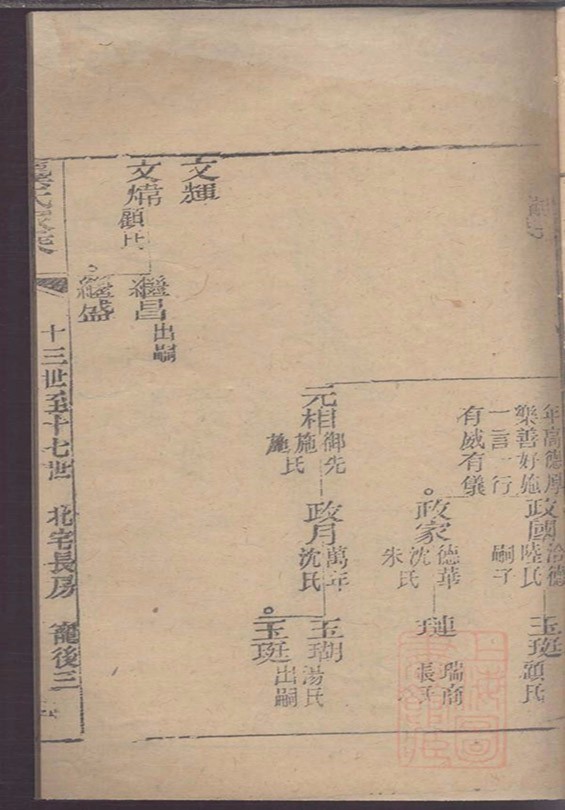 年高德厚
樂善好施
一言一行
有威有儀
政國
洽德
陸氏
嗣子
玉珽
顧氏
政家
德華
沈氏
朱
璉
瑞商
張氏
元相
御先
施氏
施
政月
萬年
沈氏
玉瑚
湯氏
玉珽
出嗣
文輝
文煒
顧氏
繼昌
出嗣
繼盛
十三世至十七世 北宅長房 寵後三